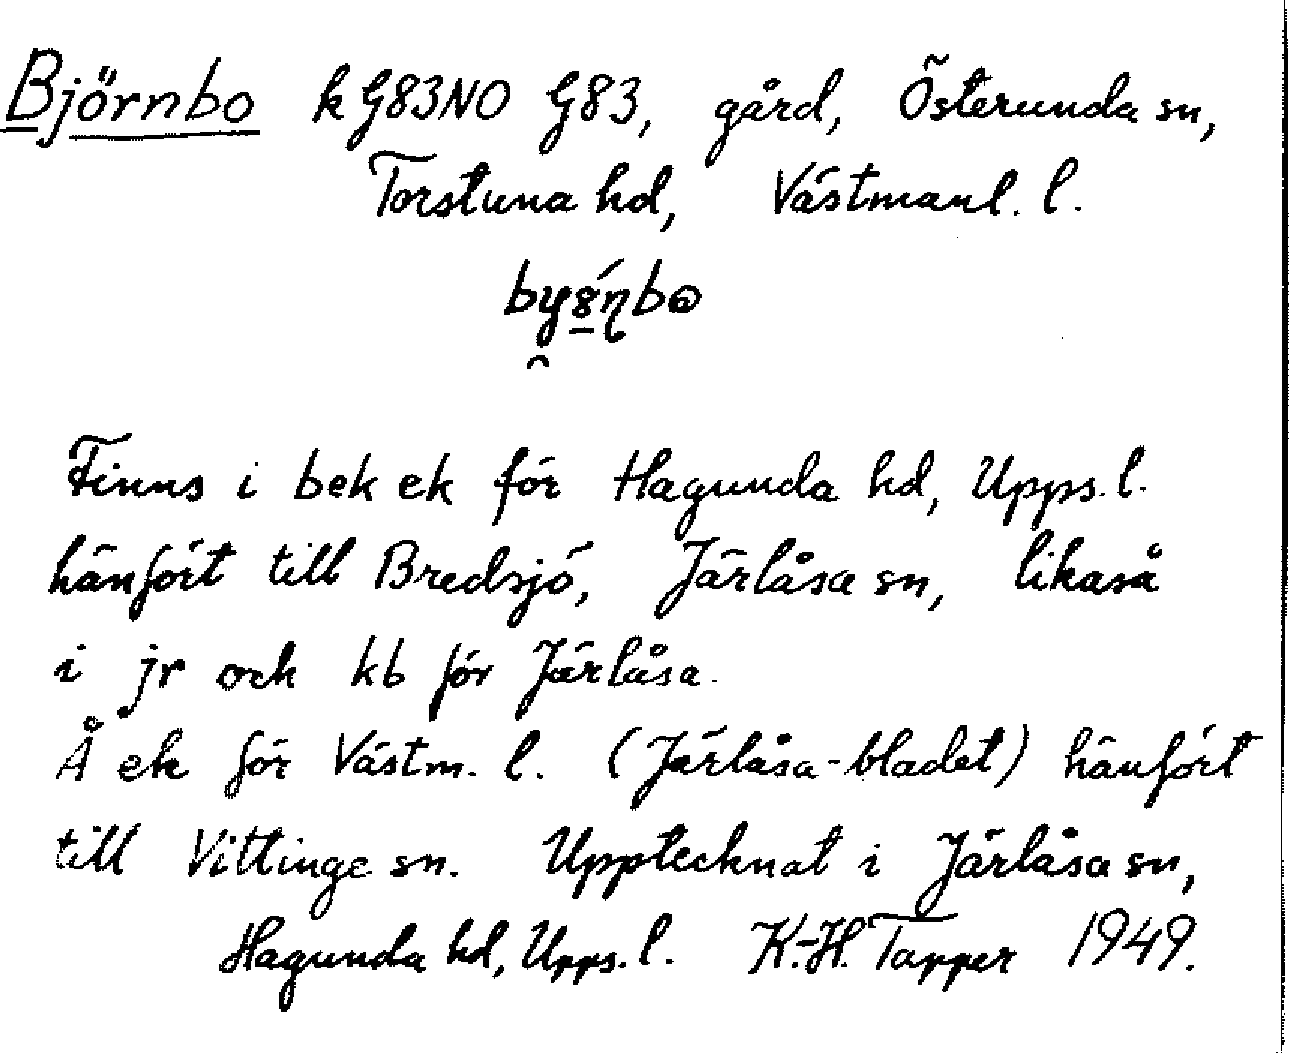 Björnbo k G83NO G83, gård, Österunda sn,
Torstuna hd, Västmanl. l.
Finns i bek ek för Hagunda hd, Upps. l.
hänfört till Bredsjö, Järlåsa sn, likaså
i jr och kb för Järlåsa.
Å ek för Västm. l. (Järlåsa-bladet) hänfört
till Vittinge sn. Upptecknat i Järlåsa sn,
Hagunda hd, Upps. l. K.-H. Tapper 1949.